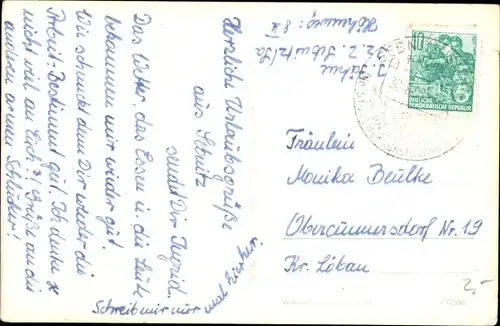 Herzliche Urlaubsgrüße
aus Sebnitz
sendet Dir Ingrid.
Das Wetter, das Essen u. die Leute
bekommen mir wieder gut.
Wie schmeckt denn Dir wieder die
Arbeit? Bestimmt gut. Ich denke
nicht viel an Euch. Grüße an die
andren armen Schlucker!
Schreib mir nur mal hierher.
Sebnitz/Sa
DEUTSCHE
DEMOKRATISCHE REPUBLIK
Fräulein
Monika Beulke
Obercunnersdorf Nr. 19
Kr. Löbau
2,-